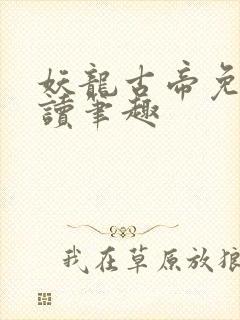 妖龍古帝免
讀筆趣
我在草原放狼